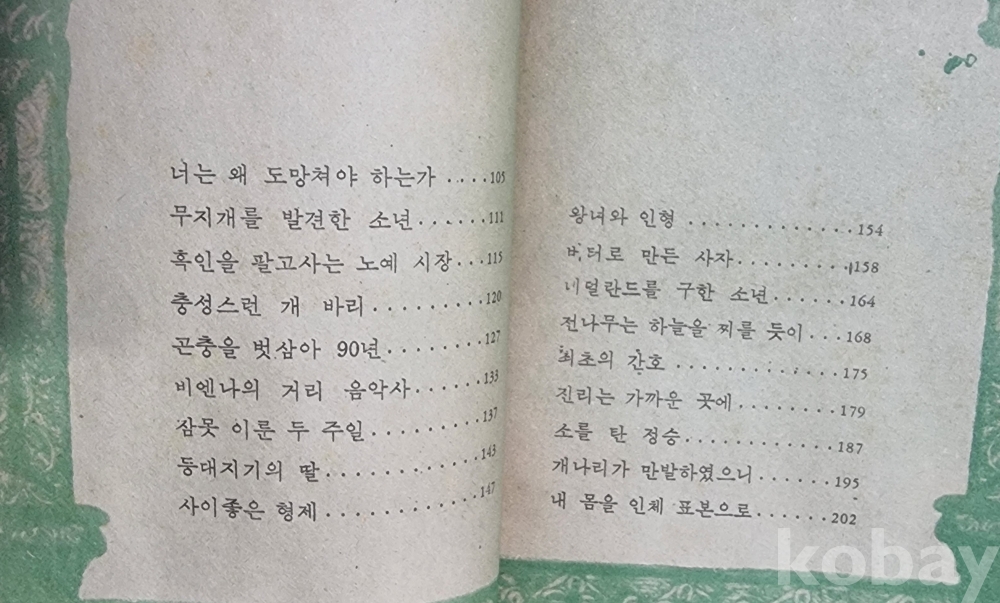 너는 왜 도망쳐야 하는가 ..... 105
무지개를 발견한 소년 ...... 111
흑인을 팔고사는 노예 시장 ... 115
충성스런 개 바리 ........ 120
곤충을 벗삼아 90년 ........ 127
비엔나의 거리 음악사 ...... 133
잠못 이룬 두 주일 ......... 137
등대지기의 딸 ........... 143
사이좋은 형제 ............ 147
왕녀와 인형 ............ 154
버터로 만든 사자 ......... 158
네덜란드를 구한 소년 ...... 164
전나무는 하늘을 찌를 듯이 ... 168
최초의 간호 ............ 175
진리는 가까운 곳에 ......... 179
소를 탄 정승 ............ 187
개나리가 만발하였으니 ...... 195
내 몸을 인체 표본으로 ...... 202
kobay